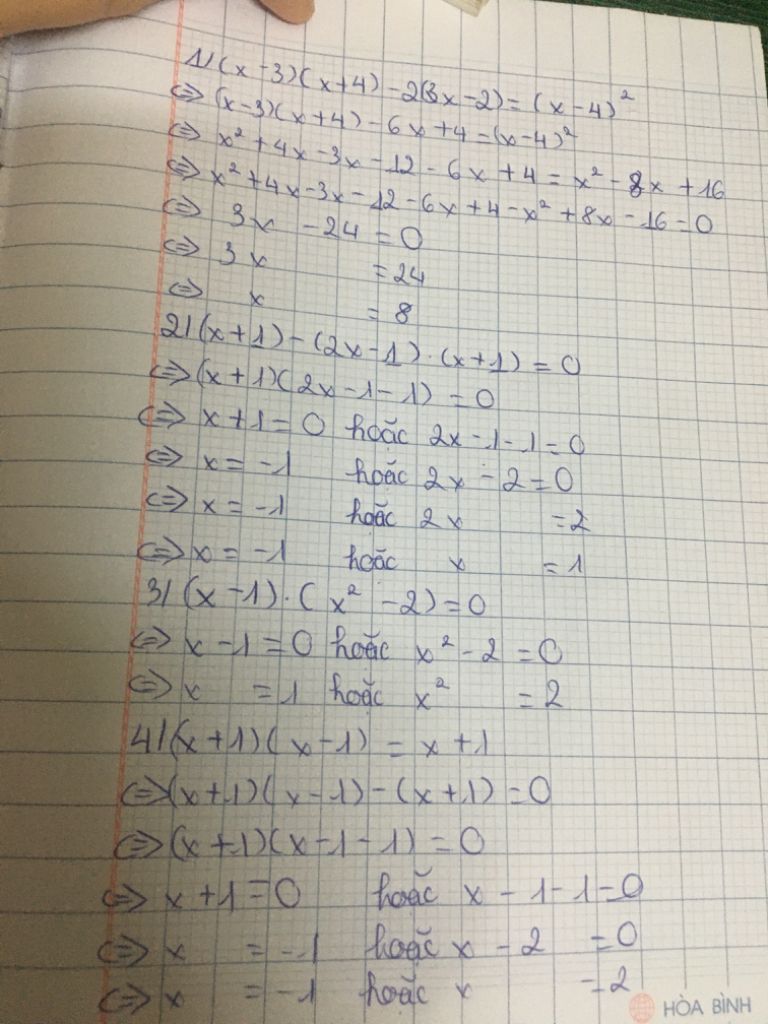 1/ (x-3)(x+4) - 2(3x-2) = (x-4)²
⇔ (x-3)(x+4) - 6x + 4 = (x-4)²
⇔ x² + 4x - 3x - 12 - 6x + 4 = x² - 8x + 16
⇔ x² + 4x - 3x - 12 - 6x + 4 - x² + 8x - 16 = 0
⇔ 3x - 24 = 0
⇔ 3x = 24
⇔ x = 8
2/ (x+1) - (2x-1).(x+1) = 0
⇔ (x+1)(2x-1-1) = 0
⇔ x+1 = 0 hoặc 2x-1-1 = 0
⇔ x = -1 hoặc 2x - 2 = 0
⇔ x = -1 hoặc 2x = 2
⇔ x = -1 hoặc x = 1
3/ (x-1).(x² - 2) = 0
⇔ x-1 = 0 hoặc x² - 2 = 0
⇔ x = 1 hoặc x² = 2
4/ (x+1)(x-1) = x+1
⇔ (x+1)(x-1) - (x+1) = 0
⇔ (x+1)(x-1-1) = 0
⇔ x+1 = 0 hoặc x-1-1 = 0
⇔ x = -1 hoặc x - 2 = 0
⇔ x = -1 hoặc x = 2
HÒA BÌNH